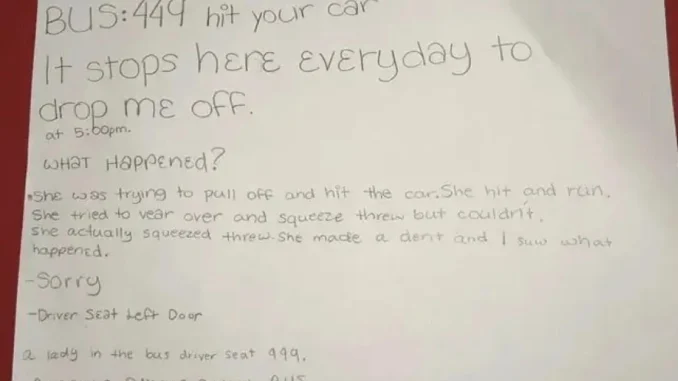 BUS: 449 hit your car
It stops here everyday to
drop me off.
at 5:00pm.
WHAT HAPPENED?
•She was trying to pull off and hit the car. She hit and run.
She tried to vear over and squeeze threw but couldn't.
She actually squeezed threw. She made a dent and I suw what
happened.
-Sorry
-Driver Seat Left Door
a lady in the bus driver seat 999.
BUS